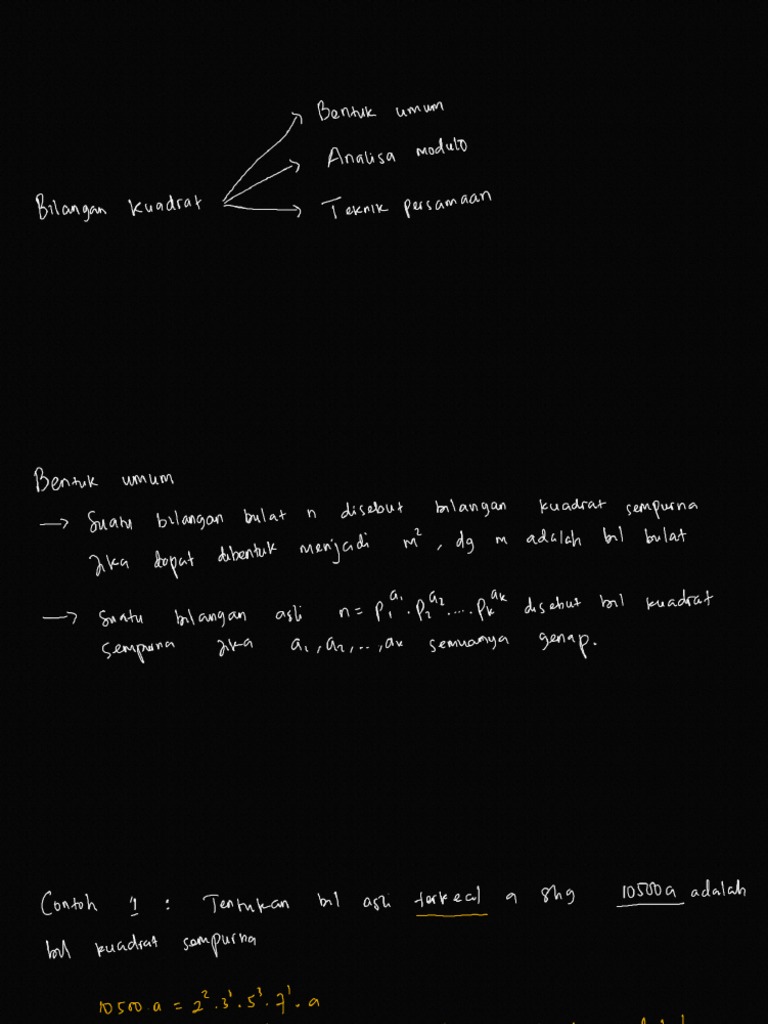 Bentuk umum
Analisa modulo
Bilangan kuadrat
Teknik persamaan
Bentuk umum
→ Suatu bilangan bulat n disebut bilangan kuadrat sempurna
jika dapat dibentuk menjadi m², dg m adalah bil bulat
→ Suatu bilangan asli n = p₁^a₁ . p₂^a₂ .... pₖ^aₖ disebut bil kuadrat
sempurna jika a₁, a₂, .., aₖ semuanya genap.
Contoh 1 : Tentukan bil asli terkecil a shg 10500a adalah
bil kuadrat sempurna
10500.a = 2² . 3¹ . 5³ . 7¹ . a